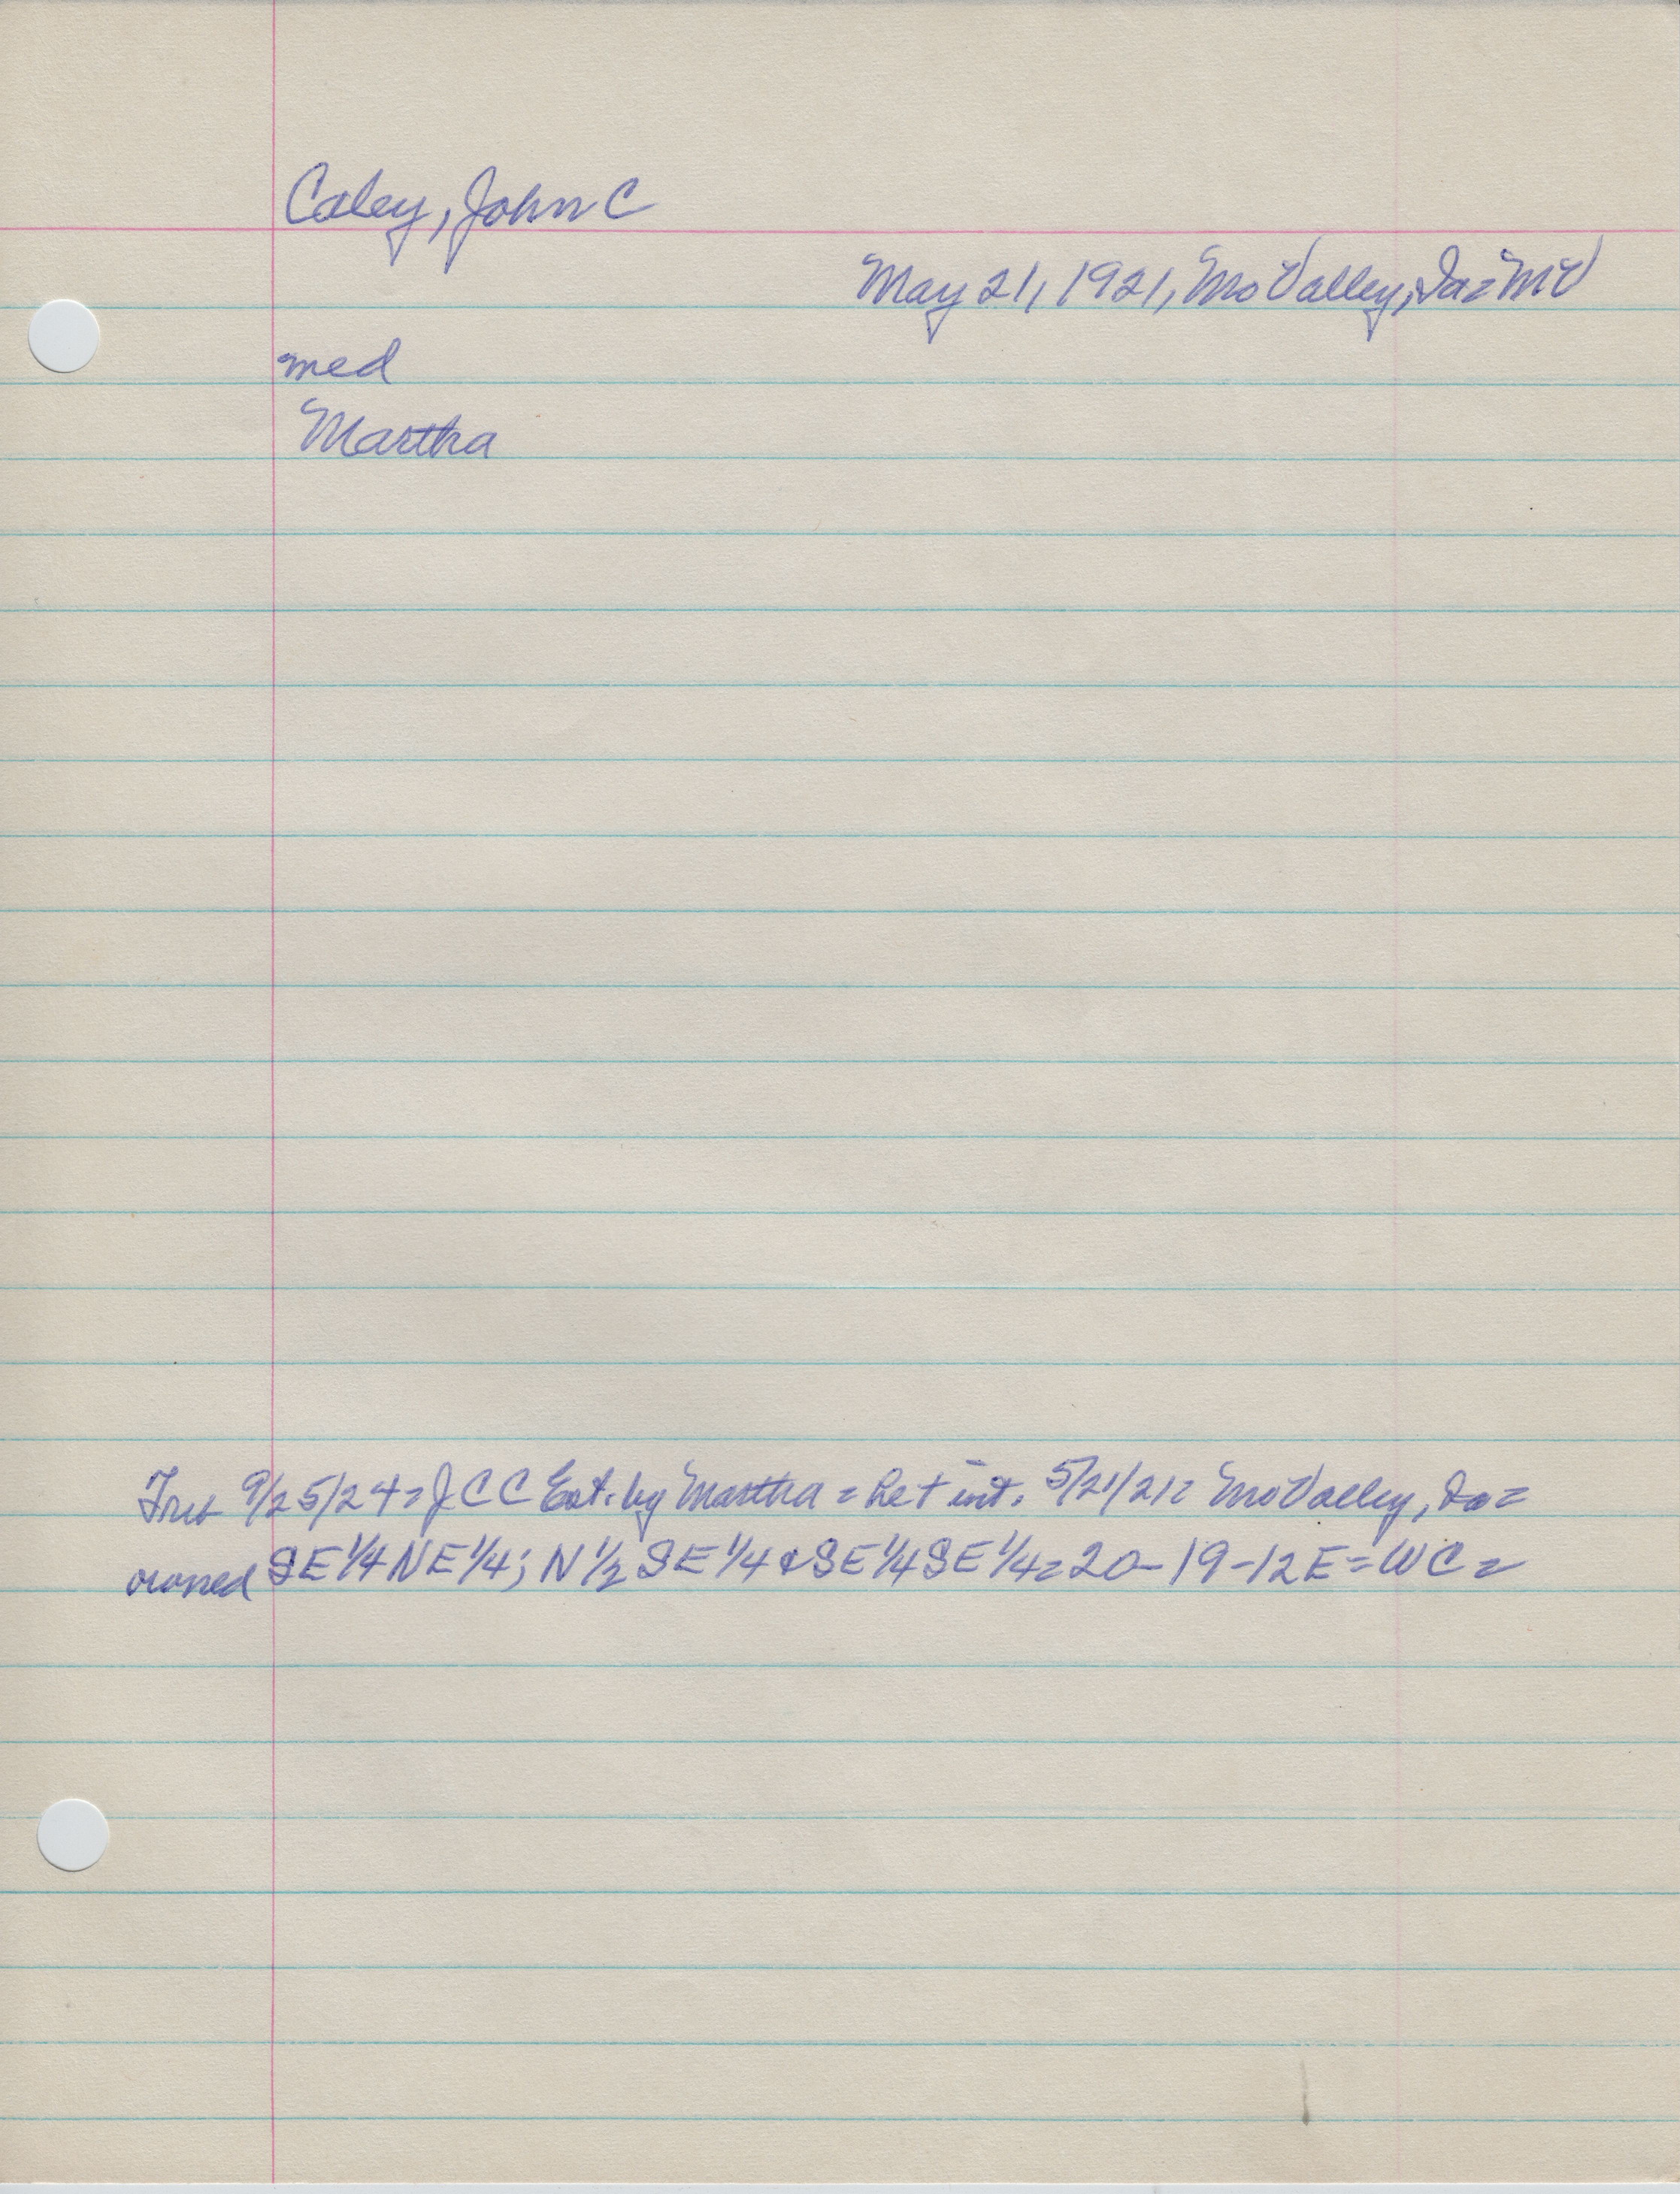 Caley, John C
May 21, 1921, Mo Valley, Ia = MV
med
Martha
9/25/24 = J C C Est. by Martha = Let int. 5/21/21 = Mo Valley, Ia =
owned SE 1/4 NE 1/4; N 1/2 SE 1/4 & SE 1/4 SE 1/4 = 20-19-12E = WC =